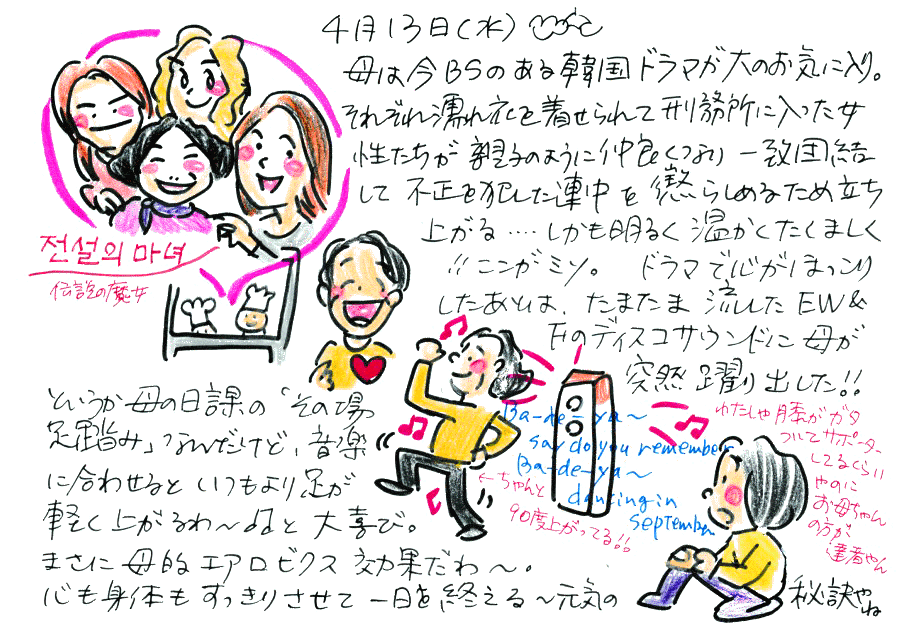 4月13日(水)
母は今BSのある韓国ドラマが大のお気に入り。
それぞれ濡れ衣を着せられて刑務所に入った女
性たちが親子のように仲良くなり一致団結
して不正を犯した連中を懲らしめるため立ち
上がる....しかも明るく温かくたくましく
!!ここがミソ。ドラマで心がほっこり
したあとは、たまたま流したEW&
Fのディスコサウンドに母が
突然躍り出した!!
전설의 마녀
伝説の魔女
というか母の日課の「その場
足踏み」なんだけど、音楽
に合わせるといつもより足が
軽く上がるわ〜♫と大喜び。
まさに母的エアロビクス効果だわ〜。
心も身体もすっきりさせて一日を終える〜元気の秘訣やね
Ba-de-ya〜
say do you remember
Ba-de-ya〜
dancing in
September
←ちゃんと
90度上がってる!!
わたしゃ膝がガタ
ついてサポーター
してるくらい
やのに
お母ちゃん
の方が
達者やん